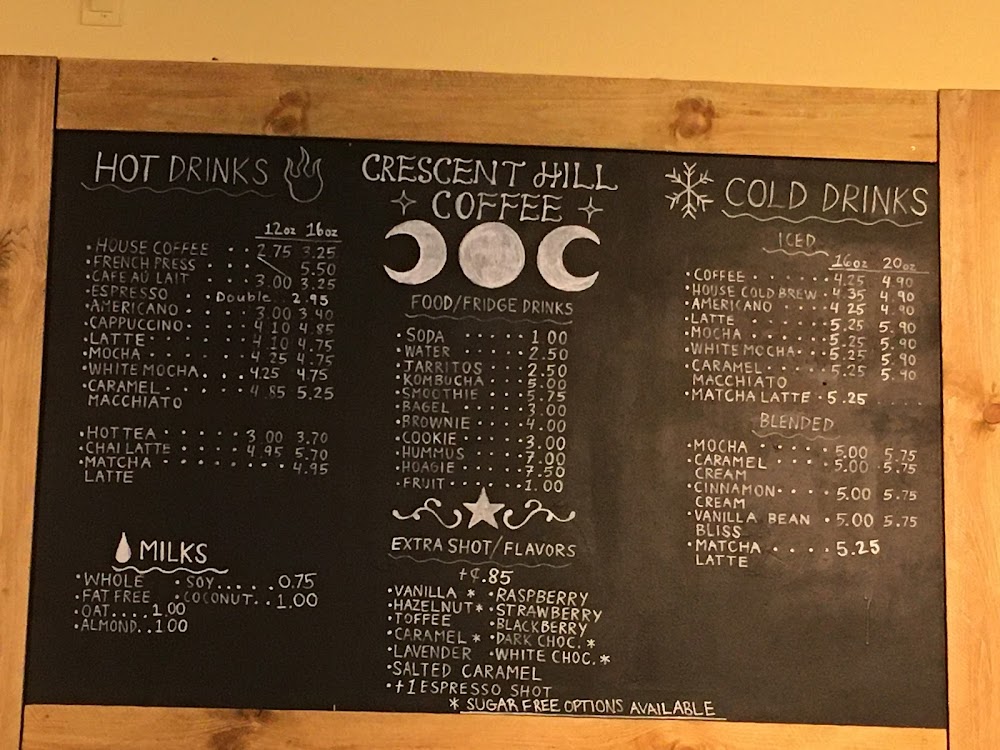 HOT DRINKS
12oz 16oz
• HOUSE COFFEE . . 2.75 3.25
• FRENCH PRESS . . . 5.50
• CAFE AU LAIT . . . 3.00 3.25
• ESPRESSO . . Double . . 2.95
• AMERICANO . . . . 3.00 3.90
• CAPPUCCINO . . . . 4.10 4.85
• LATTE . . . . . 4.10 4.75
• MOCHA . . . . . 4.25 4.75
• WHITE MOCHA . . . 4.25 4.75
• CARAMEL . . . . 4.85 5.25
MACCHIATO
• HOT TEA . . . . . 3.00 3.70
• CHAI LATTE . . . . 4.95 5.70
• MATCHA . . . . . . . . 4.95
LATTE
MILKS
• WHOLE • SOY..... 0.75
• FAT FREE • COCONUT.. 1.00
• OAT.... 1.00
• ALMOND.. 1.00
CRESCENT HILL
COFFEE
FOOD/FRIDGE DRINKS
• SODA . . . . . 1.00
• WATER . . . . . 2.50
• JARRITOS . . . . 2.50
• KOMBUCHA . . . . 5.00
• SMOOTHIE . . . . 5.75
• BAGEL . . . . . 3.00
• BROWNIE . . . . 4.00
• COOKIE . . . . . 3.00
• HUMMUS . . . . 7.00
• HOAGIE . . . . . 7.50
• FRUIT . . . . . 1.00
EXTRA SHOT/FLAVORS
+¢.85
• VANILLA * • RASPBERRY
• HAZELNUT * • STRAWBERRY
• TOFFEE • BLACKBERRY
• CARAMEL * • DARK CHOC. *
• LAVENDER • WHITE CHOC. *
• SALTED CARAMEL
• +1 ESPRESSO SHOT
* SUGAR FREE OPTIONS AVAILABLE
COLD DRINKS
ICED
16oz 20oz
• COFFEE . . . . . . 4.25 4.90
• HOUSE COLD BREW . 4.35 4.90
• AMERICANO . . . . 4.25 4.90
• LATTE . . . . . . 5.25 5.90
• MOCHA . . . . . . 5.25 5.90
• WHITE MOCHA . . . 5.25 5.90
• CARAMEL . . . . . 5.25 5.90
MACCHIATO
• MATCHA LATTE . 5.25
BLENDED
• MOCHA . . . . . 5.00 5.75
• CARAMEL . . . . 5.00 5.75
CREAM
• CINNAMON . . . . 5.00 5.75
CREAM
• VANILLA BEAN . 5.00 5.75
BLISS
• MATCHA . . . . 5.25
LATTE